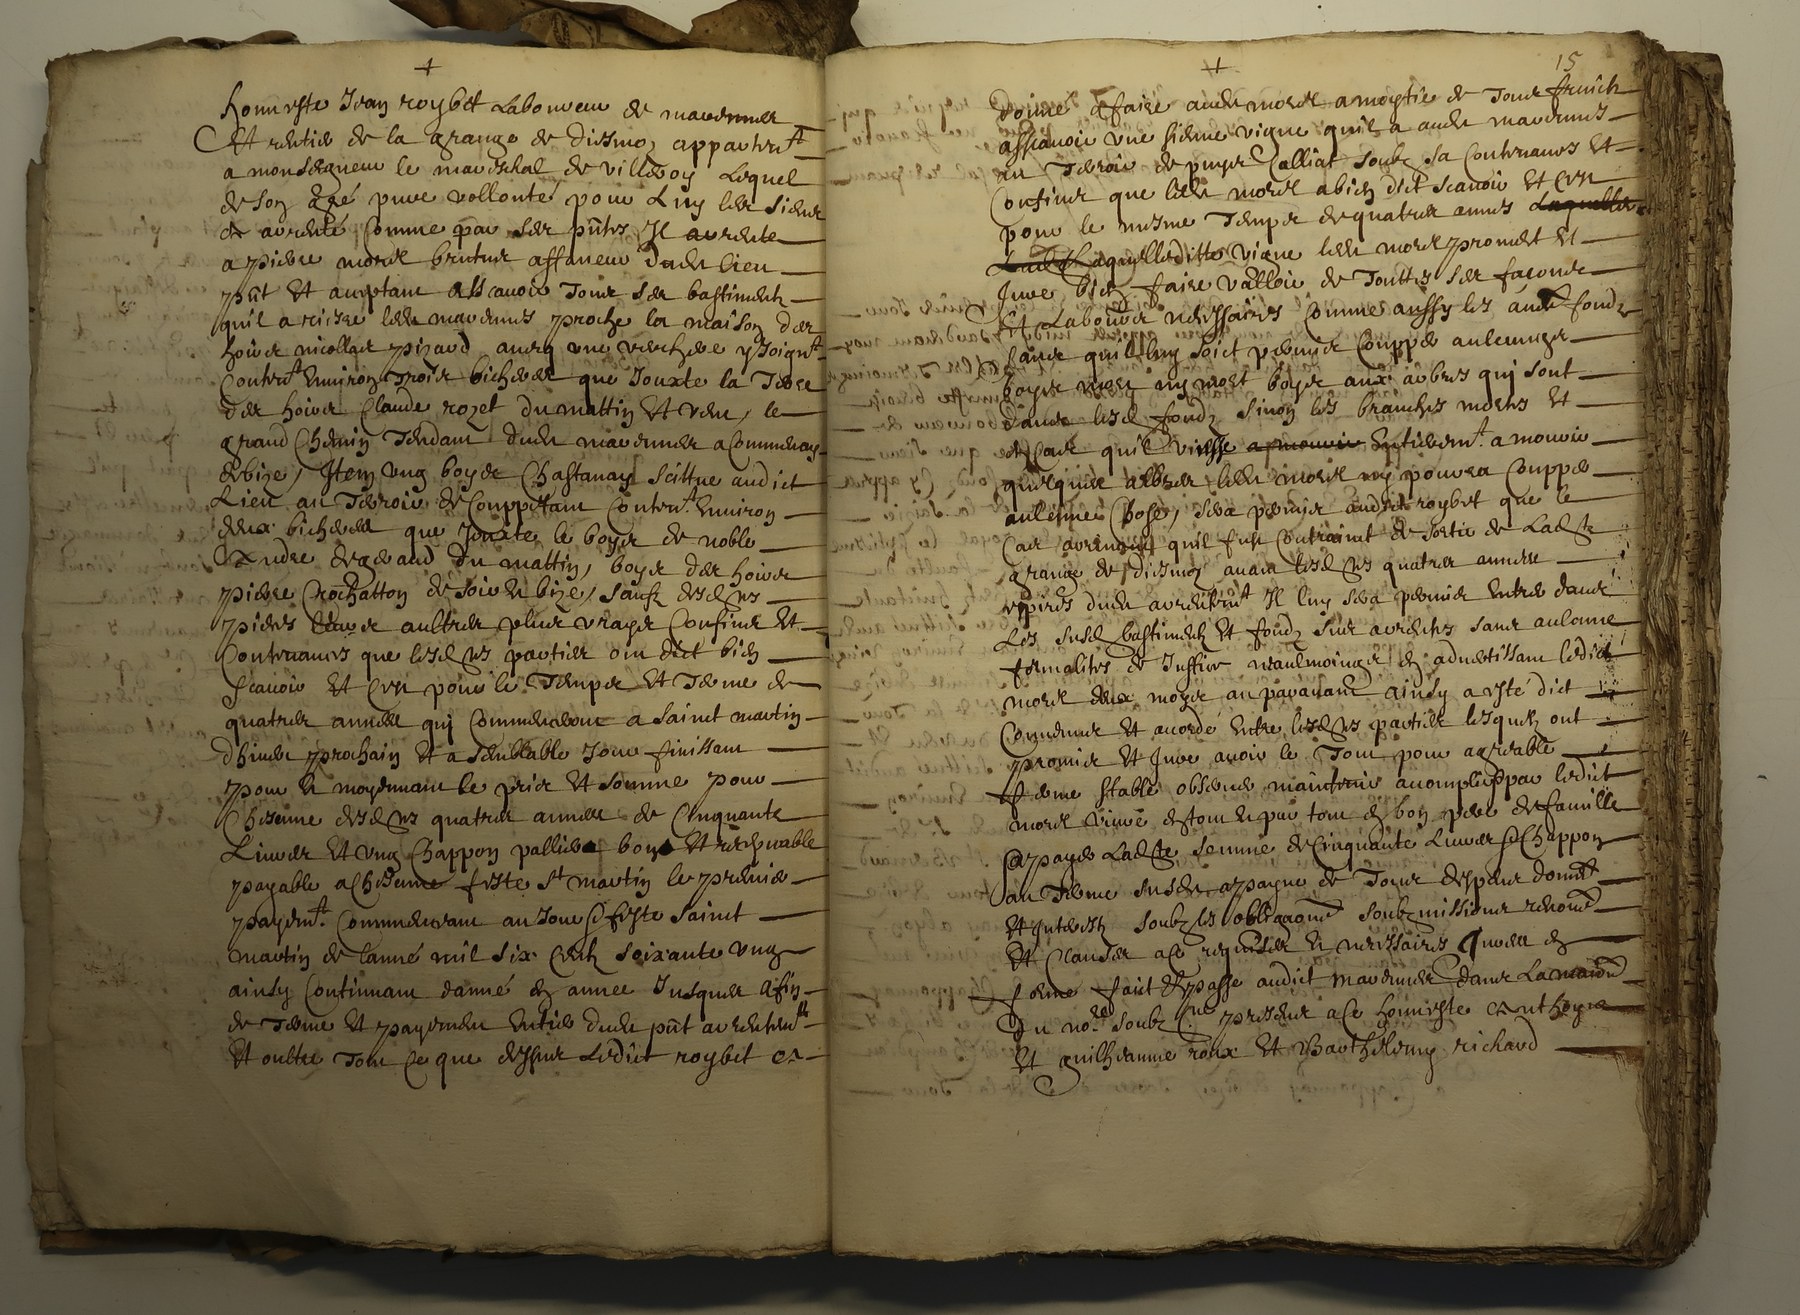 +
honneste Jean roybet Laboureur de mavennes
Et rentier de la grange de Diesmoz appartent
a monseigneur le mareschal de villeroy Lequel
de son gré pure vollonté pour Luy les siens
a arenté comme par ses pntes Il arente
a pierre morel brutus affaneur dudit lieu
pnt Et aceptant assavoir tous ses bastiments
qu'il a riere ledit mavennes proche la maison des
hoirs nicollas pizard avecq une verchere y Joignt
Content Environ Trois bicherees que Jouxte la Terre
des hoirs Claude rozet du mattin Et vent, le
grand Chemin Tendant dudit mavennes a Communay
de bize, Item ung boys de Chastanay scittue audict
Lieu au Terroir de Couppetant Content Environ
deux bicherees que Jouxte le boys de noble
Andre degerand du mattin, boys des hoirs
pierre Crochatton de soir Et bize, saufz desdites
pieces leurs aultres plus vrays Confins Et
Contenances que lesdites parties ont dict bien
scavoir Et Ceu pour le Temps Et Terme de
quatres annees qui Commenceront a sainct martin
dhiver prochain Et a semblable Jour finissant
pour Et moyennant le prix Et somme pour
Chascune desdites quatres annees de Cinquante
Livres Et ung Chappon pallies bons Et recepvable
payable a Chascune feste st martin le premier
payemt Commencant au Jour & feste sainct
martin de lanné mil six Cents soixante ung
ainsy Continuant danné en annee Jusques a fin
de Terme Et payement Entier dudit pnt arentemt
Et oultre Tout Ce que dessus Ledict roybet a
+
15
donné a faire audit morel a moytie de Tous fruicts
assavoir une sienne vigne quil a audit mavennes
au Terroir de puys Calliat soubz sa Contenances Et
Confins que ledit morel a bien dict scavoir Et Ceu
pour le mesme Temps de quatres annes Laquelles
Laquelleditte vigne ledit morel promet Et
Jure bien faire valloir de Touttes ses facons
Et Labours necessaires Comme aussy les autres fondz
sans quil luy soict permis Coupper aulcungs
boys vert ny mort boys aux arbres qui sont
dans lesd fondz sinon les branches mortes Et
au Cas quil vinsse a mourir Entieremt a mourir
quelques arbres ledit morel ny pourra Coupper
aulcune Chose, sera permis audict roybet que le
Cas avenant quil fust Contrainct de sortir de Ladte
grange de diesmoz avant lesdites quatres annees
expires dudit arentemt Il luy sera permis Entrer dans
Les susd bastiments Et fondz sus arentes sans aulcune
formalites de Justice neaulmoings en advertissant ledict
morel deux moys auparavant ainsy a esté dict
Convenus Et acordé Entre lesdites parties lesquels ont
promis Et Jure avoir le Tout pour agreable
ferme stable observer maintenir acomplir par ledict
morel vivre en tout Et par tout en bon pere de famille
& payer Ladte somme de Cinquante Livres & Chappon
au Terme susdit a payne de Tous despens domat
Et Interests soubz les obligaons soubzmissions renons
Et Clauses a ce requises Et necessaires Jurees en
forme faict & passe audict mavennes dans La maison
du nore soubz ne presens a ce honneste anthoyne
Et guilheaume roux Et Barthelemy richard